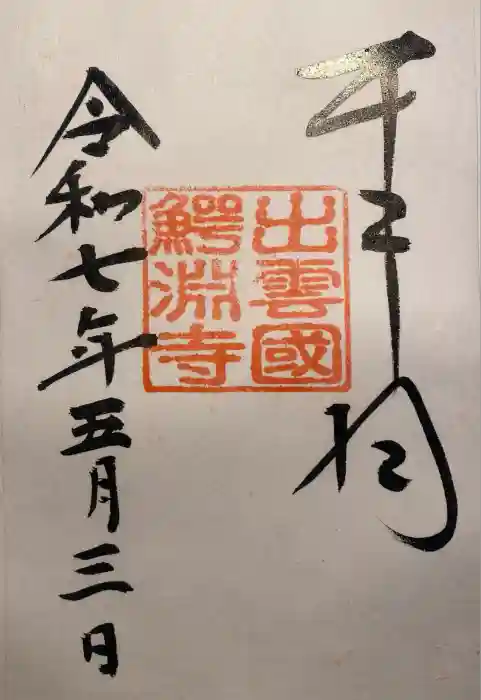 奉拝
出雲國
鰐淵寺
令和七年五月三日